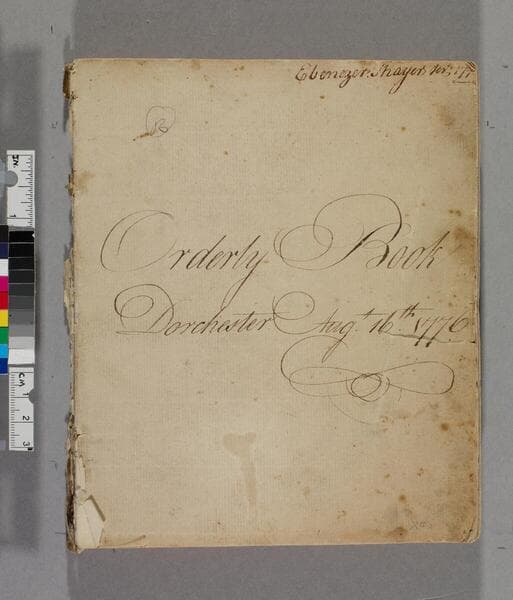 Ebenezer Thayer
Orderly Book
Dorchester Augt. 16th. 1776
IN.
1
CM
1
2
3